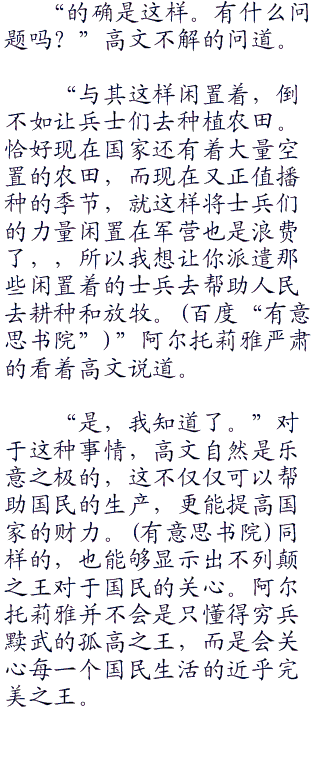 “的确是这样。有什么问
题吗？”高文不解的问道。
“与其这样闲置着，倒
不如让兵士们去种植农田。
恰好现在国家还有着大量空
置的农田，而现在又正值播
种的季节，就这样将士兵们
的力量闲置在军营也是浪费
了，，所以我想让你派遣那
些闲置着的士兵去帮助人民
去耕种和放牧。(百度“有意
思书院”)”阿尔托莉雅严肃
的看着高文说道。
“是，我知道了。”对
于这种事情，高文自然是乐
意之极的，这不仅仅可以帮
助国民的生产，更能提高国
家的财力。(有意思书院)同
样的，也能够显示出不列颠
之王对于国民的关心。阿尔
托莉雅并不会是只懂得穷兵
黩武的孤高之王，而是会关
心每一个国民生活的近乎完
美之王。